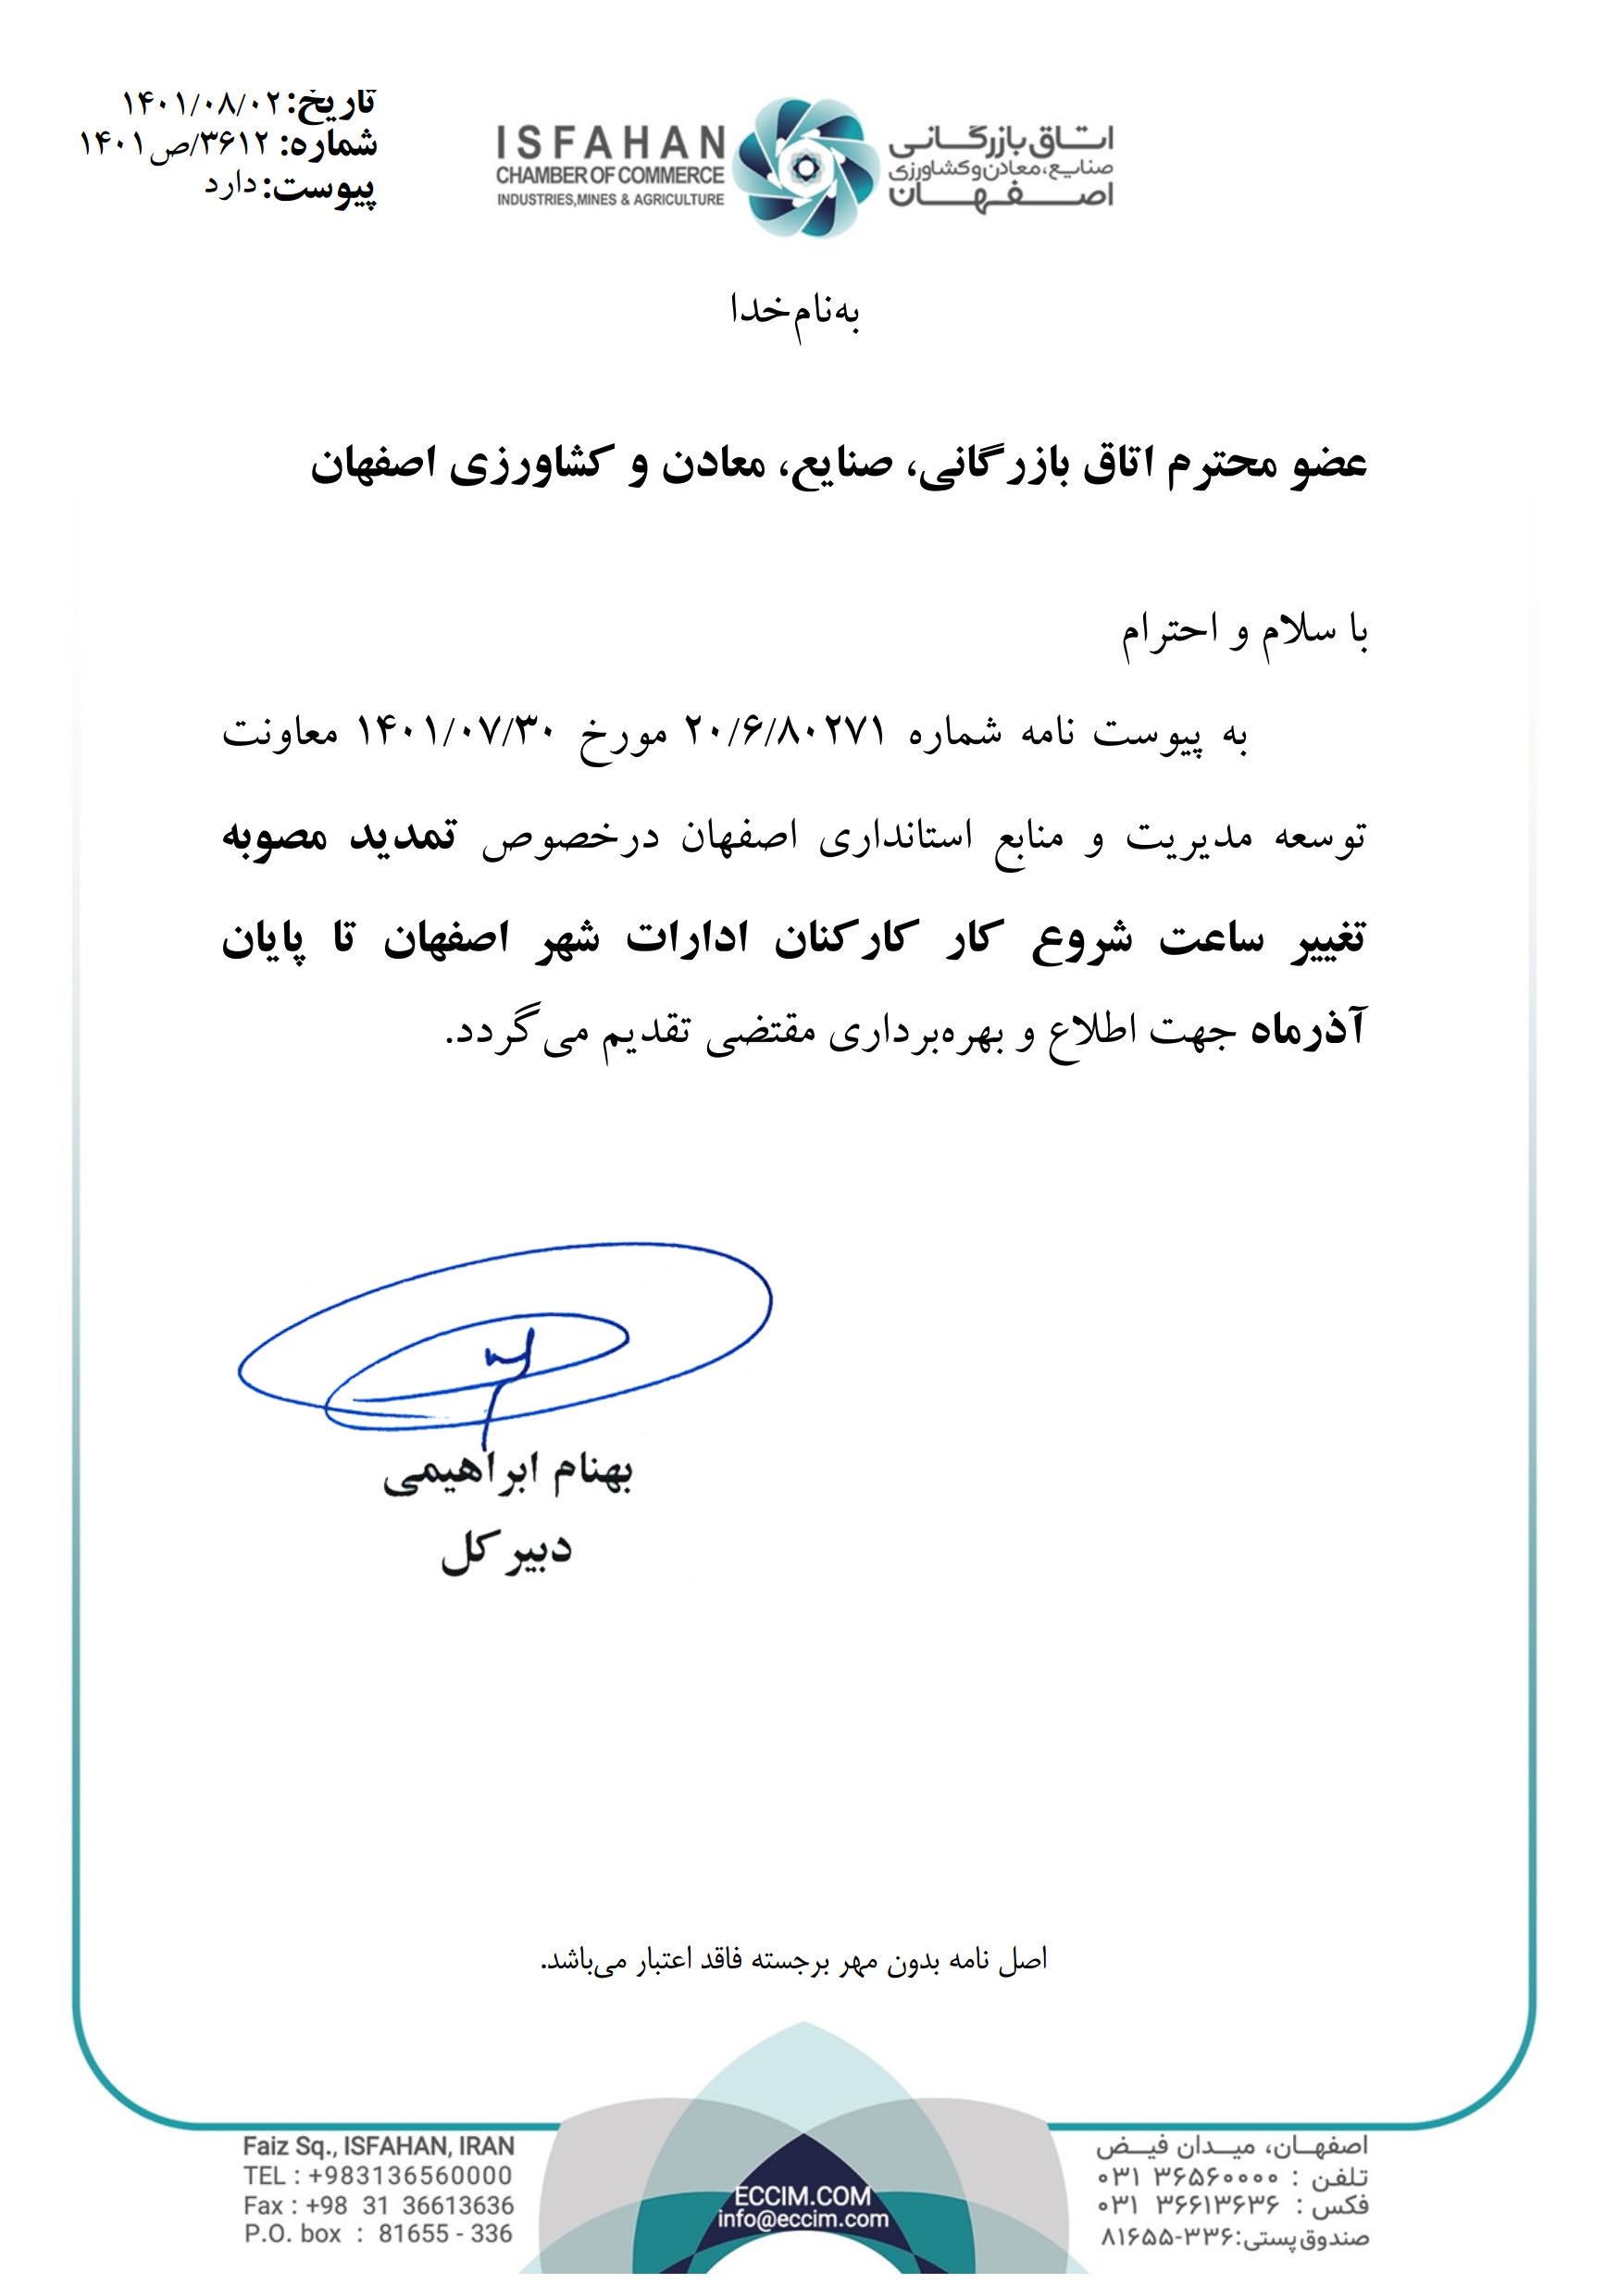 تاریخ: ۱۴۰۱/۰۸/۰۲
شماره: ۳۶۱۲/ص۱۴۰۱
پیوست: دارد
ISFAHAN
CHAMBER OF COMMERCE
INDUSTRIES,MINES & AGRICULTURE
اتاق بازرگانی
صنایع، معادن و کشاورزی
اصفهان
به‌نام‌خدا
عضو محترم اتاق بازرگانی، صنایع، معادن و کشاورزی اصفهان
با سلام و احترام
به پیوست نامه شماره ۲۰/۶/۸۰۲۷۱ مورخ ۱۴۰۱/۰۷/۳۰ معاونت
توسعه مدیریت و منابع استانداری اصفهان درخصوص تمدید مصوبه
تغییر ساعت شروع کار کارکنان ادارات شهر اصفهان تا پایان
آذرماه جهت اطلاع و بهره‌برداری مقتضی تقدیم می‌گردد.
بهنام ابراهیمی
دبیر کل
اصل نامه بدون مهر برجسته فاقد اعتبار می‌باشد.
اصفهان، میدان فیض
تلفن : ۳۶۵۶۰۰۰۰ ۰۳۱
فکس : ۳۶۶۱۳۶۳۶ ۰۳۱
صندوق پستی: ۳۳۶-۸۱۶۵۵
ECCIM.COM
info@eccim.com
Faiz Sq., ISFAHAN, IRAN
TEL : +983136560000
Fax : +98 31 36613636
P.O. box : 81655 - 336